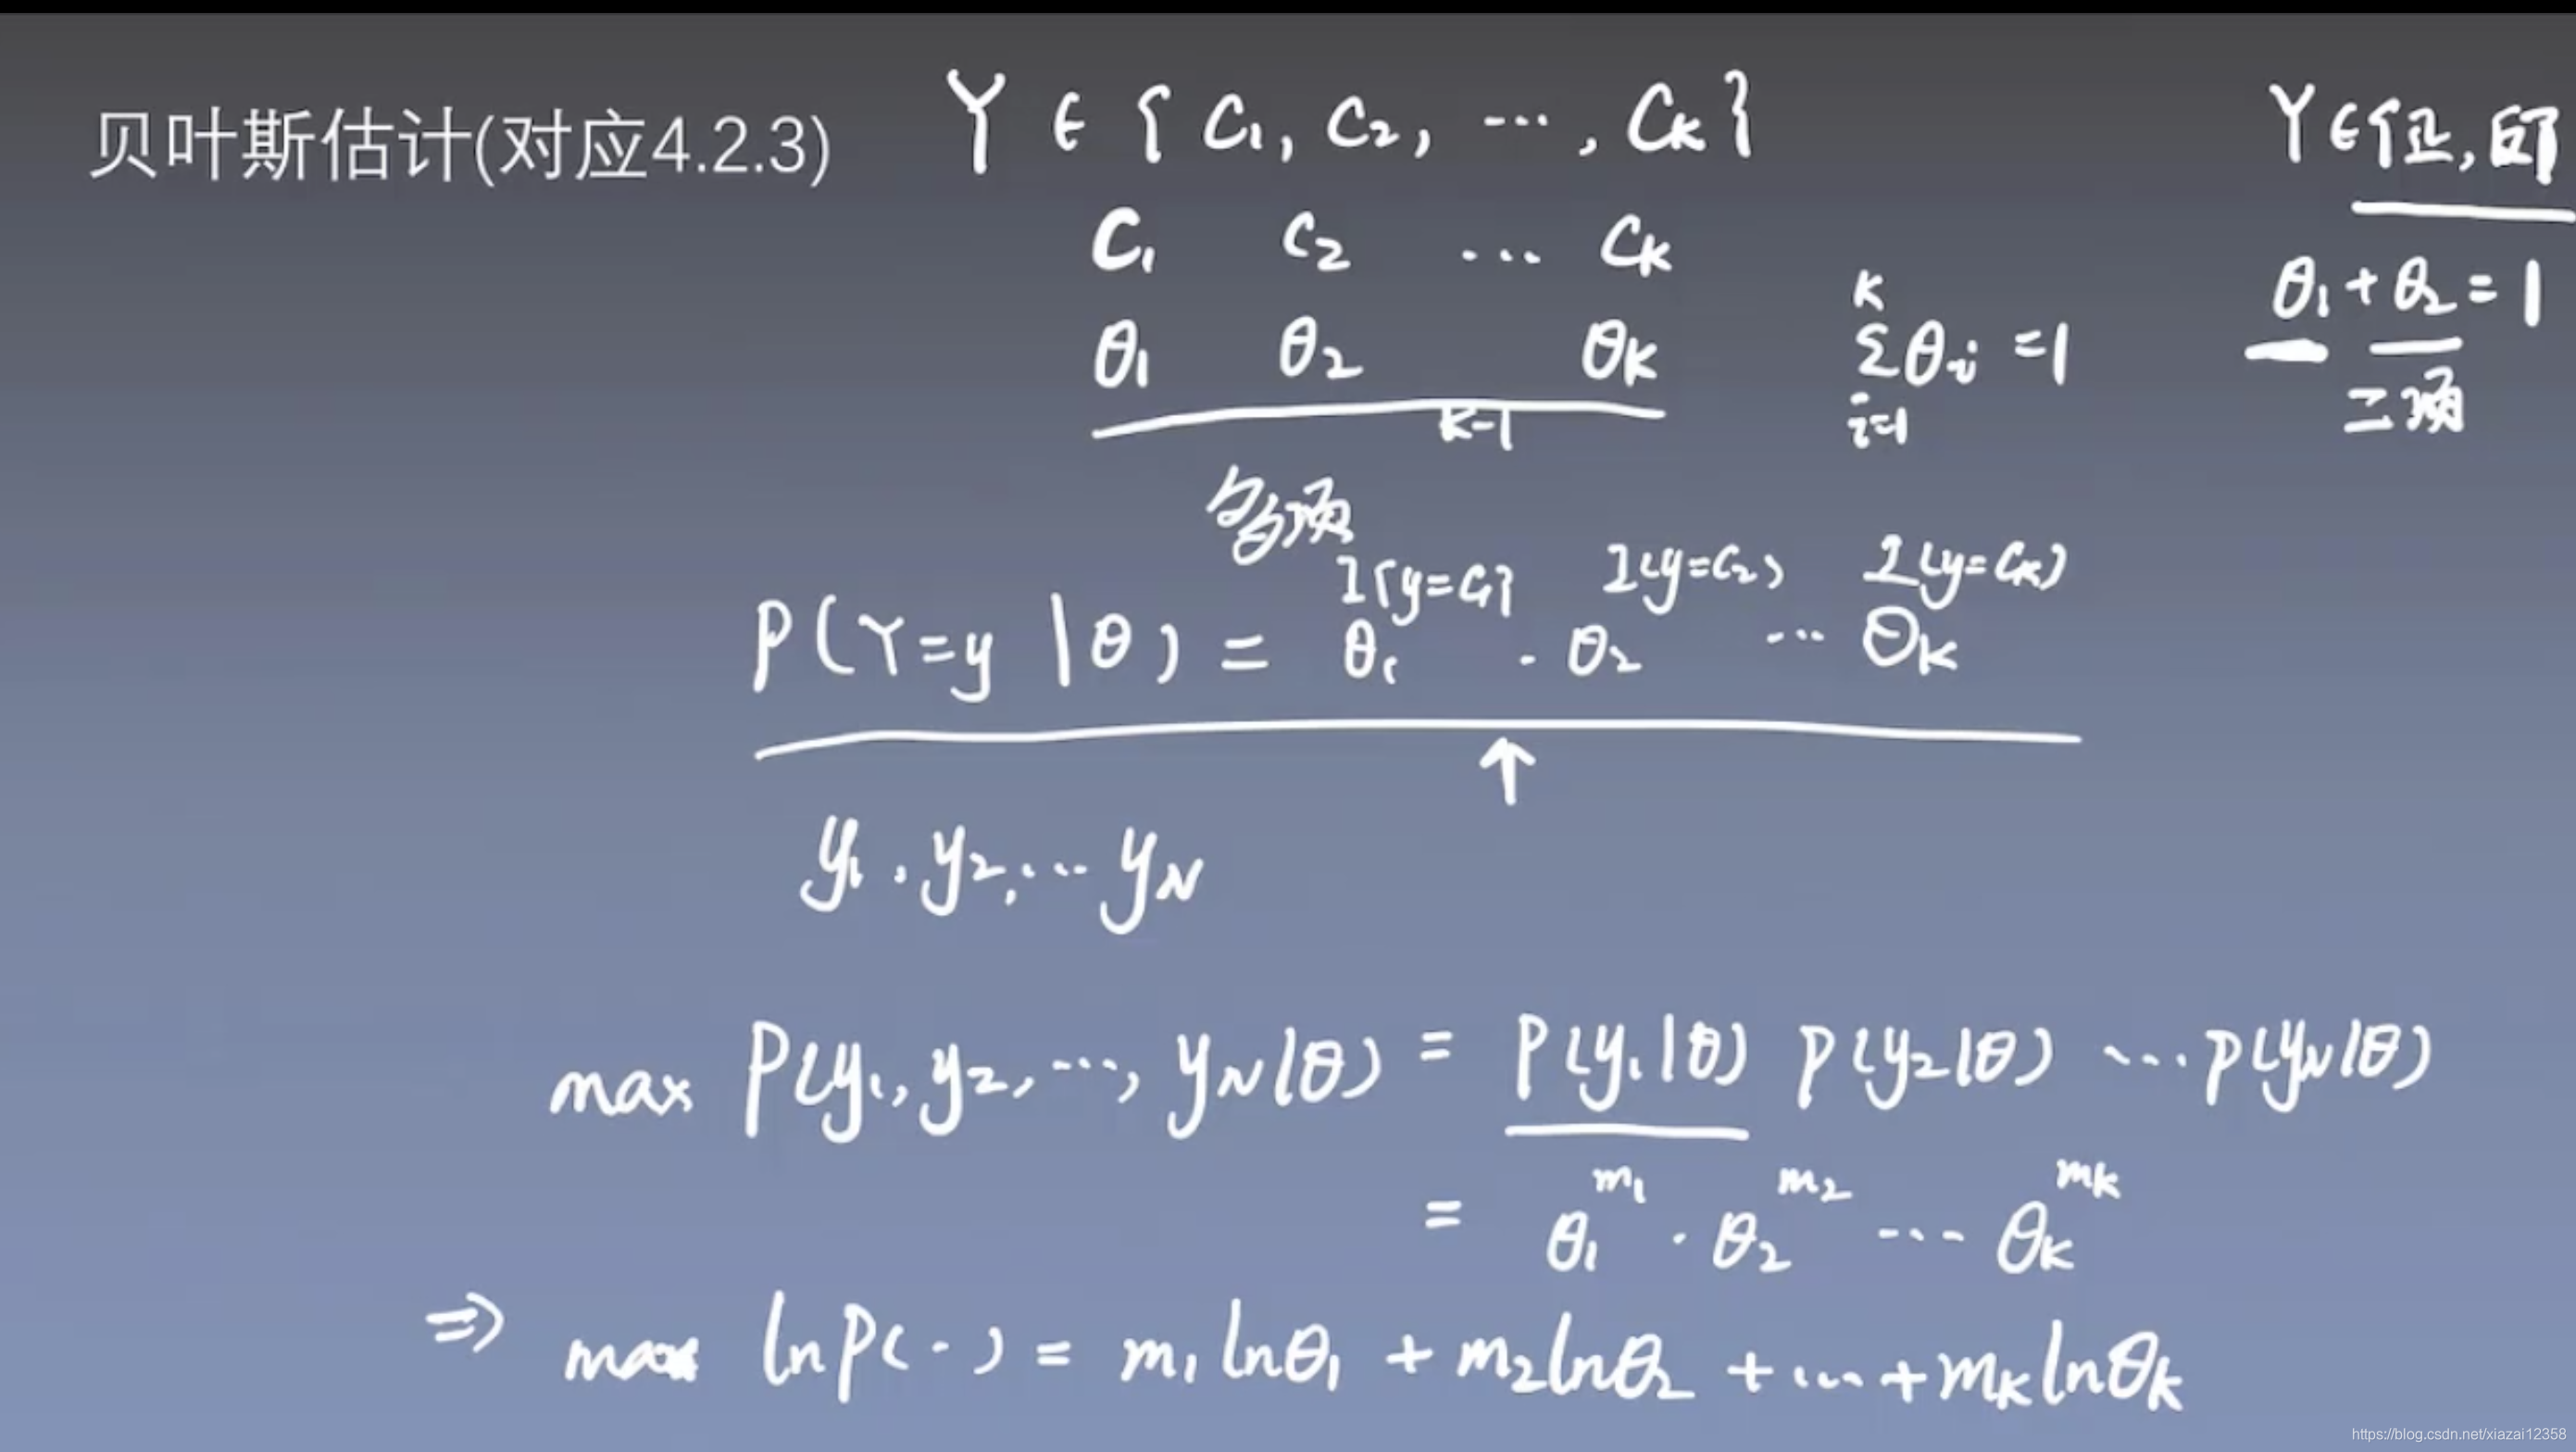 贝叶斯估计(对应4.2.3)
Y ∈ {C₁, C₂, ⋯, Cₖ}
Y ∈ {正,
C₁ C₂ ⋯ Cₖ
θ₁ θ₂ θₖ
K-1
∑ᵢ₌₁ᴷ θᵢ = 1
θ₁ + θ₂ = 1
二项
多项
P(Y=y | θ) = θ₁^{I{y=C₁}} · θ₂^{I(y=C₂)} ⋯ θₖ^{I(y=Cₖ)}
↑
y₁, y₂, ⋯ y_N
max P(y₁, y₂, ⋯, y_N|θ) = P(y₁|θ) P(y₂|θ) ⋯ P(y_N|θ)
= θ₁^{m₁} · θ₂^{m₂} ⋯ θₖ^{mₖ}
⇒ max ln P(·) = m₁ lnθ₁ + m₂ lnθ₂ + ⋯ + mₖ lnθₖ
https://blog.csdn.net/xiazai12358